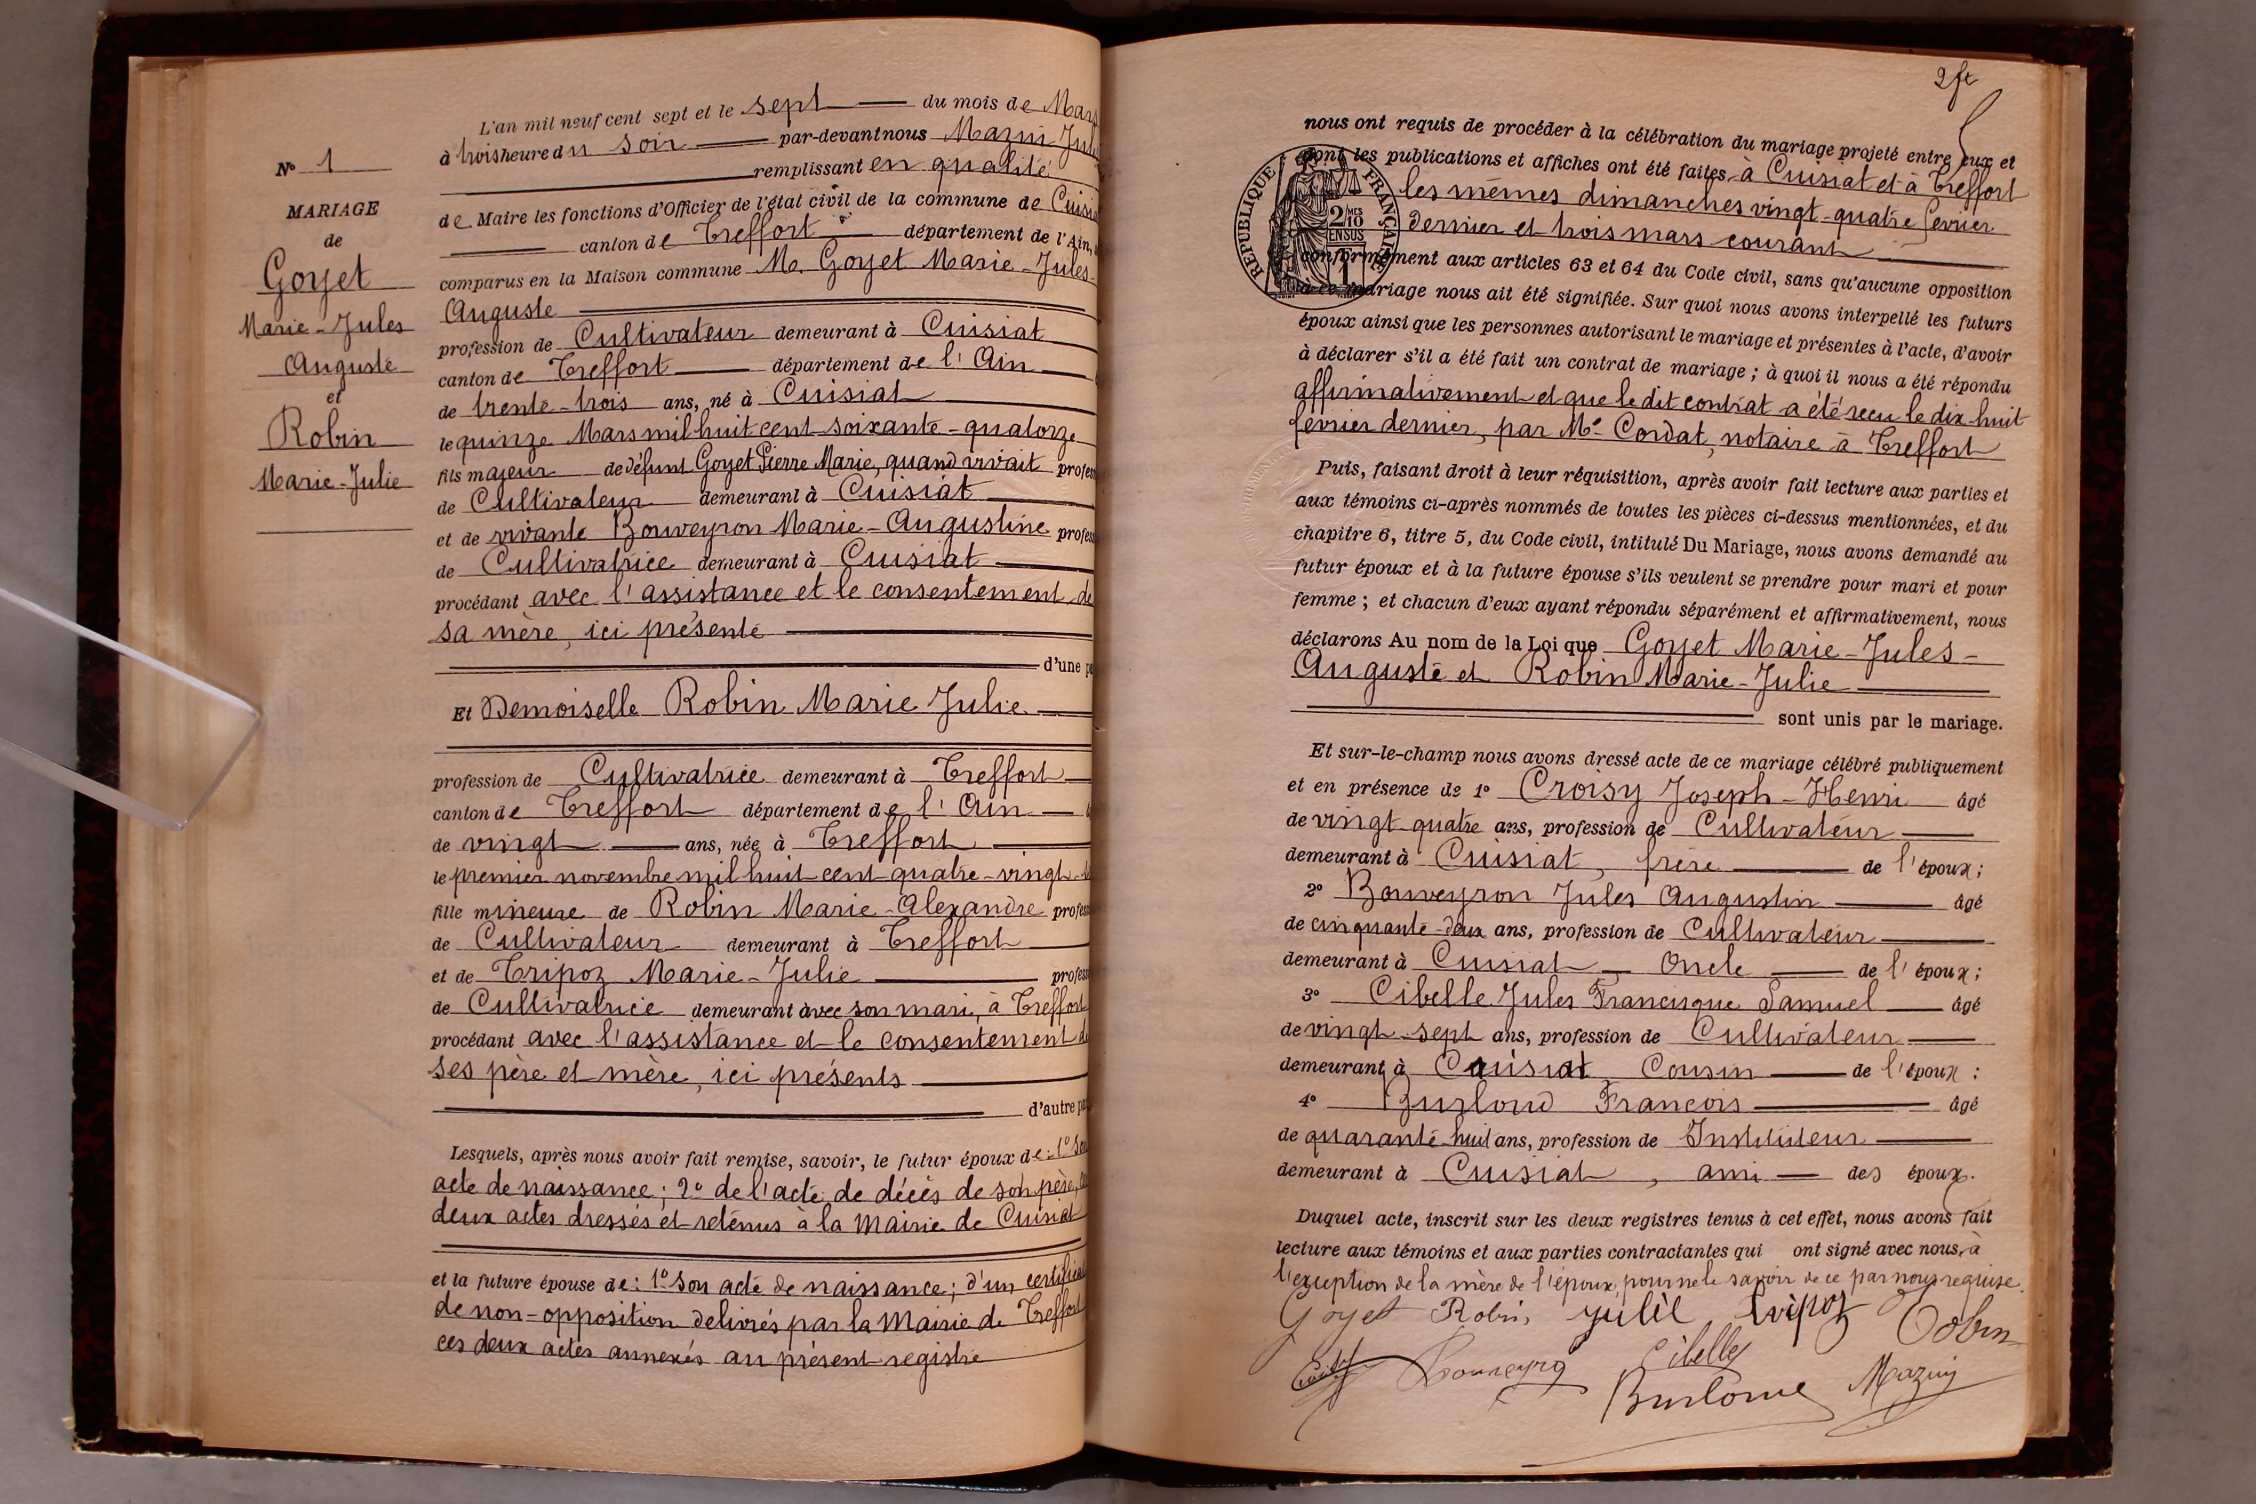 L'an mil neuf cent sept et le sept du mois de Mars
à trois heure du soir par-devant nous Mazuir
remplissant en qualité
de Maire les fonctions d'Officier de l'état civil de la commune de
canton de Treffort département de l'Ain,
comparus en la Maison commune M. Goyet Marie-Jules-
Auguste
profession de Cultivateur demeurant à Cuisiat
canton de Treffort département de l'Ain
de trente-trois ans, né à Cuisiat
le quinze Mars mil huit cent soixante-quatorze
fils majeur de défunt Goyet Pierre Marie, quand vivait
de Cultivateur demeurant à Cuisiat
et de vivante Bouveyron Marie-Augustine
de Cultivatrice demeurant à Cuisiat
procédant avec l'assistance et le consentement de
sa mère, ici présente
d'une
Et Demoiselle Robin Marie Julie
profession de Cultivatrice demeurant à Treffort
canton de Treffort département de l'Ain
de vingt ans, née à Treffort
le premier novembre mil huit cent quatre-vingt
fille mineure de Robin Marie-Alexandre
de Cultivateur demeurant à Treffort
et de Tripoz Marie-Julie
de Cultivatrice demeurant avec son mari, à Treffort
procédant avec l'assistance et le consentement de
ses père et mère, ici présents
d'autre
Lesquels, après nous avoir fait remise, savoir, le futur époux de: 1º
acte de naissance; 2º de l'acte de décès de son père,
deux actes dressés et retenus à la mairie de Cuisiat
et la future épouse de: 1º son acte de naissance; d'un certificat
de non-opposition délivrés par la Mairie de Treffort
ces deux actes annexés au présent registre
Nº 1
MARIAGE
de
Goyet
Marie-Jules
Auguste
et
Robin
Marie-Julie
2
nous ont requis de procéder à la célébration du mariage projeté entre eux et
dont les publications et affiches ont été faites à Cuisiat et à Treffort
les mêmes dimanches vingt-quatre février
dernier et trois mars courant
conformément aux articles 63 et 64 du Code civil, sans qu'aucune opposition
à ce mariage nous ait été signifiée. Sur quoi nous avons interpellé les futurs
époux ainsi que les personnes autorisant le mariage et présentes à l'acte, d'avoir
à déclarer s'il a été fait un contrat de mariage; à quoi il nous a été répondu
affirmativement et que le dit contrat a été reçu le dix huit
février dernier, par Me Cordat, notaire à Treffort
RÉPUBLIQUE FRANÇAISE
2/10 MES
EN SUS
1
Puis, faisant droit à leur réquisition, après avoir fait lecture aux parties et
aux témoins ci-après nommés de toutes les pièces ci-dessus mentionnées, et du
chapitre 6, titre 5, du Code civil, intitulé Du Mariage, nous avons demandé au
futur époux et à la future épouse s'ils veulent se prendre pour mari et pour
femme; et chacun d'eux ayant répondu séparément et affirmativement, nous
déclarons Au nom de la Loi que Goyet Marie-Jules-
Auguste et Robin Marie-Julie
sont unis par le mariage.
Et sur-le-champ nous avons dressé acte de ce mariage célébré publiquement
et en présence de 1º Croisy Joseph-Henri âgé
de vingt quatre ans, profession de Cultivateur
demeurant à Cuisiat, frère de l'époux;
2º Bouveyron Jules Augustin âgé
de cinquante-deux ans, profession de Cultivateur
demeurant à Cuisiat Oncle de l'époux;
3º Cibelle Jules Francisque Samuel âgé
de vingt-sept ans, profession de Cultivateur
demeurant à Cuisiat, Cousin de l'époux;
4º Burloud François âgé
de quarante-huit ans, profession de Instituteur
demeurant à Cuisiat, ami des époux.
Duquel acte, inscrit sur les deux registres tenus à cet effet, nous avons fait
lecture aux témoins et aux parties contractantes qui ont signé avec nous, à
l'exception de la mère de l'époux, pour ne le savoir de ce par nous requise.
Goyet Robin Julie Tripoz Robin
Bouveyron Cibelle
Burloud Mazuir